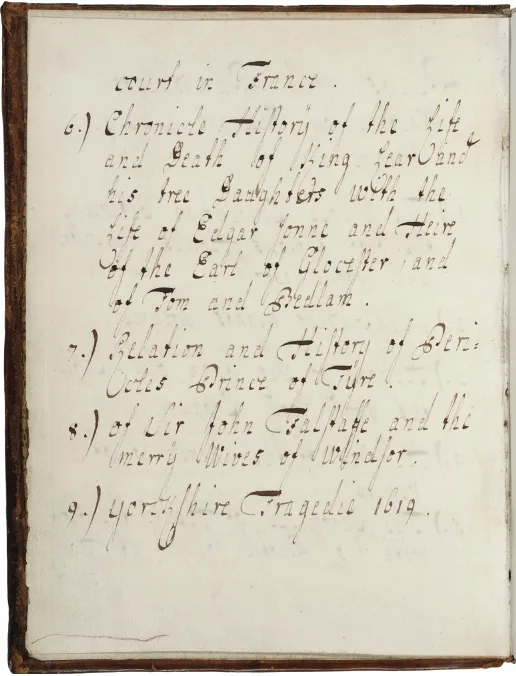 court in France.
6.) Chronicle History of the Life
and Death of King Lear and
his tree Daughters with the
Life of Edgar Sonne and Heire
of the Earl of Glocester and
of Tom and Bedlam.
7.) Relation and History of Peri:
cles Prince of Tyre.
8.) of Sir John Falstaffe and the
merry Wives of Windsor.
9.) Yorckshire Tragedie 1619.